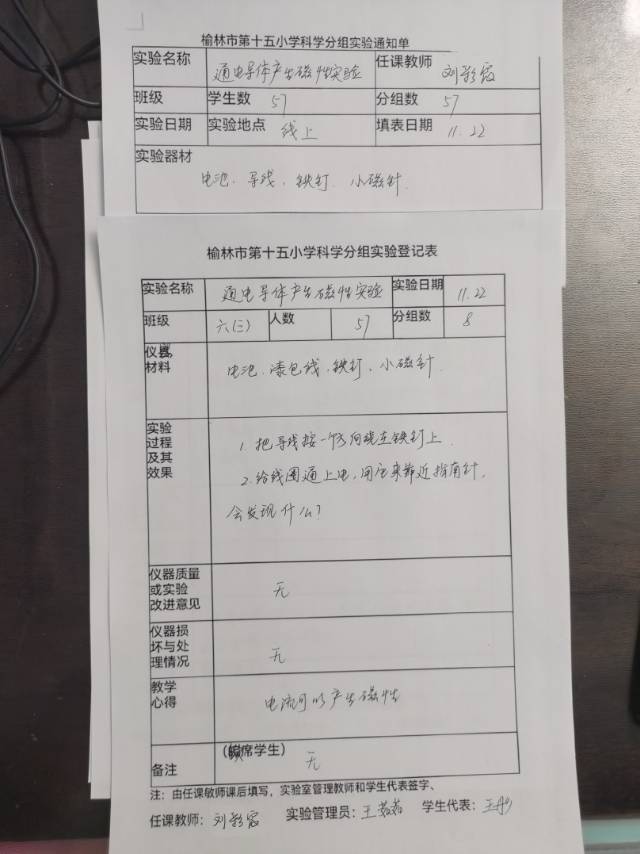 榆林市第十五小学科学分组实验通知单
实验名称 通电导体产生磁性实验 任课教师 刘彩霞
班级 学生数 57 分组数 57
实验日期 实验地点 线上 填表日期 11.22
实验器材
电池、导线、铁钉、小磁针.
榆林市第十五小学科学分组实验登记表
实验名称 通电导体产生磁性实验 实验日期 11.22
班级 六(三) 人数 57 分组数 8
仪器
材料
电池、漆包线、铁钉、小磁针.
实验
过程
及其
效果
1. 把导线按一个方向绕在铁钉上.
2. 给线圈通上电,用它来靠近指南针,
会发现什么?
仪器质量
或实验
改进意见
无
仪器损
坏与处
理情况
无
教学
心得
电流可以产生磁性
备注
(缺席学生)
无
注:由任课教师课后填写,实验室管理教师和学生代表签字、
任课教师:刘彩霞 实验管理员:王 学生代表:王